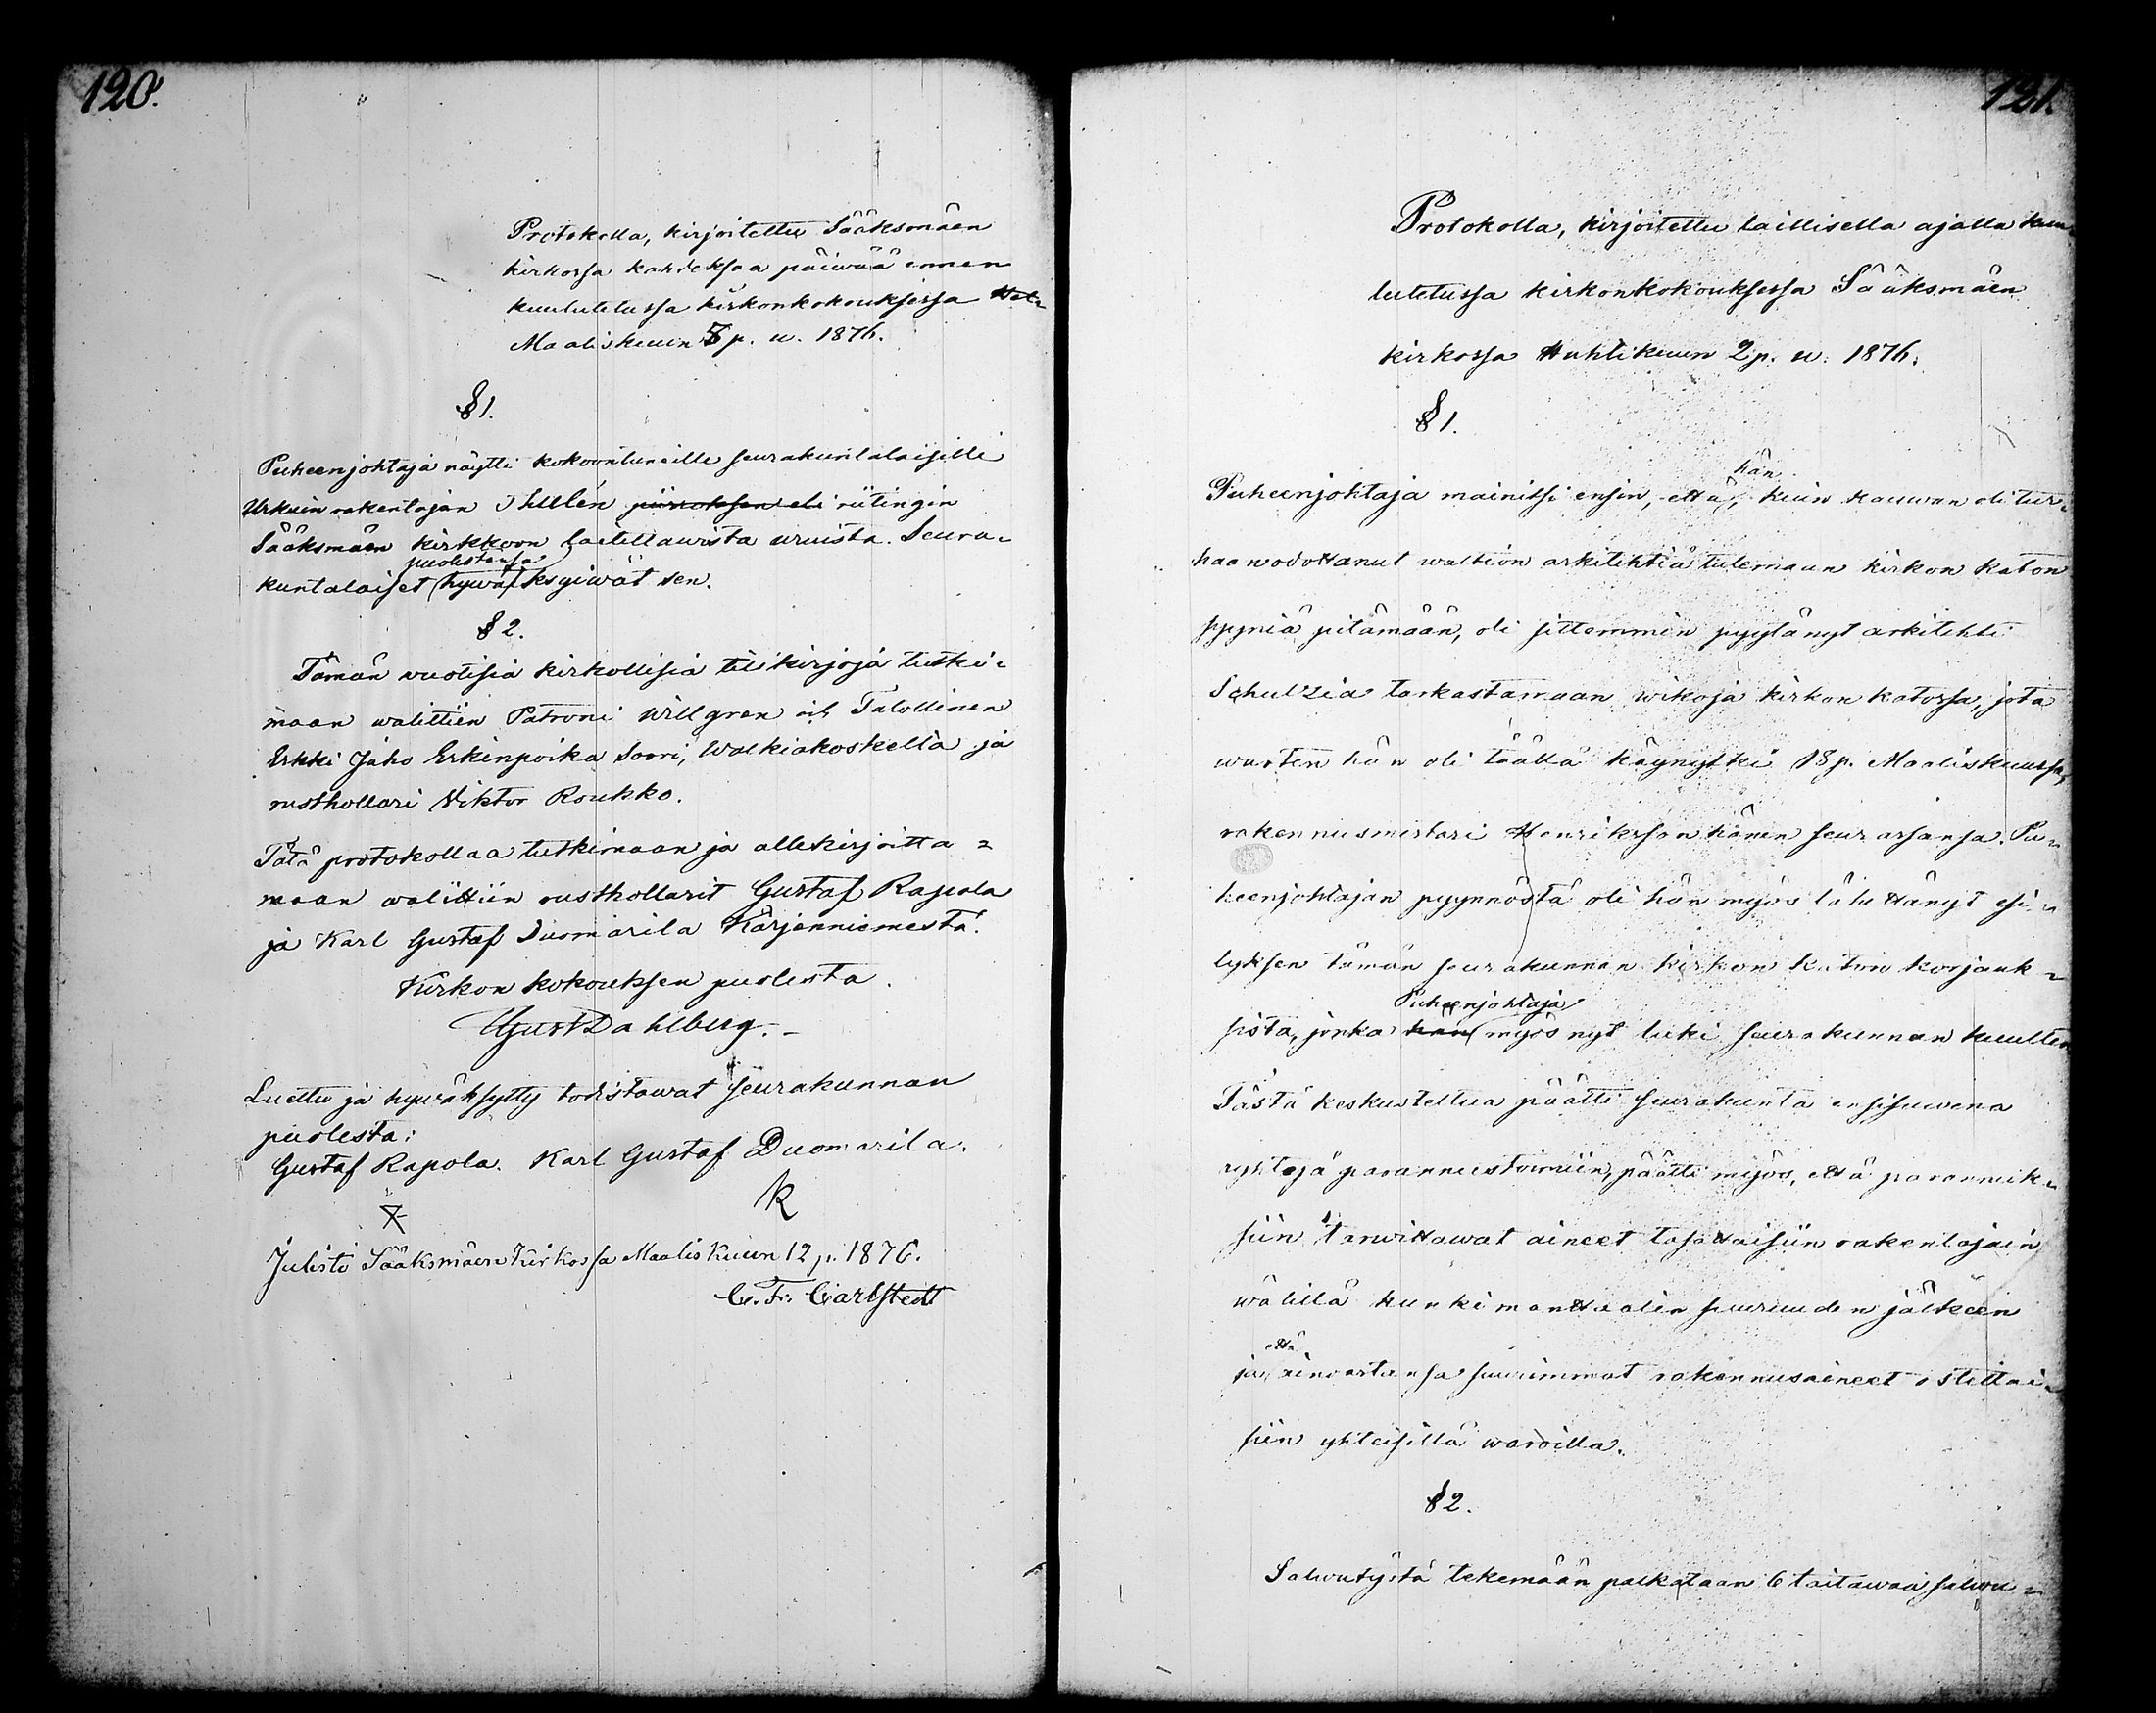 120.
Protokolla, kirjoitettu Sääksmäen
kirkossa kahdeksaa päiwää ennen
kuulutetussa kirkonkokouksessa Hel-
Maaliskuun 5 p. w. 1876.
§ 1.
Puheenjohtaja näytti kokoontuneille seurakuntalaisilli
Urkuin rakentajan Thulén piirroksen eli riitingin
Sääksmäen kirkkoon laitettawista uruista. Seura-
puolestansa
kuntalaiset hywäksyiwät sen.
§ 2.
Tämän vuotisia kirkollisia tilikirjoja tutki-
maan walittiin Patroni Willgren ich Talollinen
Erkki Juho Erkinpoika Soori, Walkiakoskella ja
rusthollari Viktor Roukko.
Tätä protokollaa tutkimaan ja allekirjoitta-
maan walittiin rusthollarit Gustaf Rapola
ja Karl Gustaf Duomarila Kärjenniemestä.
Kirkon kokouksen puolesta
Gust Dahlberg.
Luettu ja hywäksytty todistawat seurakunnan
puolesta:
Gustaf Rapola. Karl Gustaf Duomarila.
K
Julisti Sääksmäen Kirkossa Maaliskuun 12 p. 1876.
C. F. Carlstedt
121.
Protokolla, kirjoitettu laillisella ajalla kuu
lutetussa kirkonkokouksessa Sääksmäen
kirkossa Huhtikuun 2 p. w. 1876.
§ 1.
hän
Puheenjohtaja mainitsi ensin, että, kuin kauwan oli tur-
haan odottanut waltion arkitehtiä tulemaan kirkon katon
syyniä pitämään, oli sittemmin pyytänyt arkitehti
Schulzia tarkastamaan wikoja kirkon katossa, jota
warten hän oli täällä käynytki 18 p. Maaliskuussa,
rakennusmestari Henriksson hänen seurassansa. Pu-
heenjohtajan pyynnöstä oli hän myös lähettänyt esi-
tyksen tämän seurakunnan kirkon katon korjauk-
Puheenjohtaja
sista, jonka hän myös nyt luki seurakunnan kuullen
Tästä keskusteltua päätti seurakunta ensisuwena
ryhtyä parannustoimiin, päätti myös, että parannuk-
siin tarwittawat aineet tasattaisiin rakentajain
wälillä kunki manttaalin suuruuden jälkeen
että
ja ainoastansa suurimmat rakennusaineet ostettai-
siin yhteisillä waroilla.
§ 2.
Salwutyötä tekemään palkataan 6 taitawaa salwu-